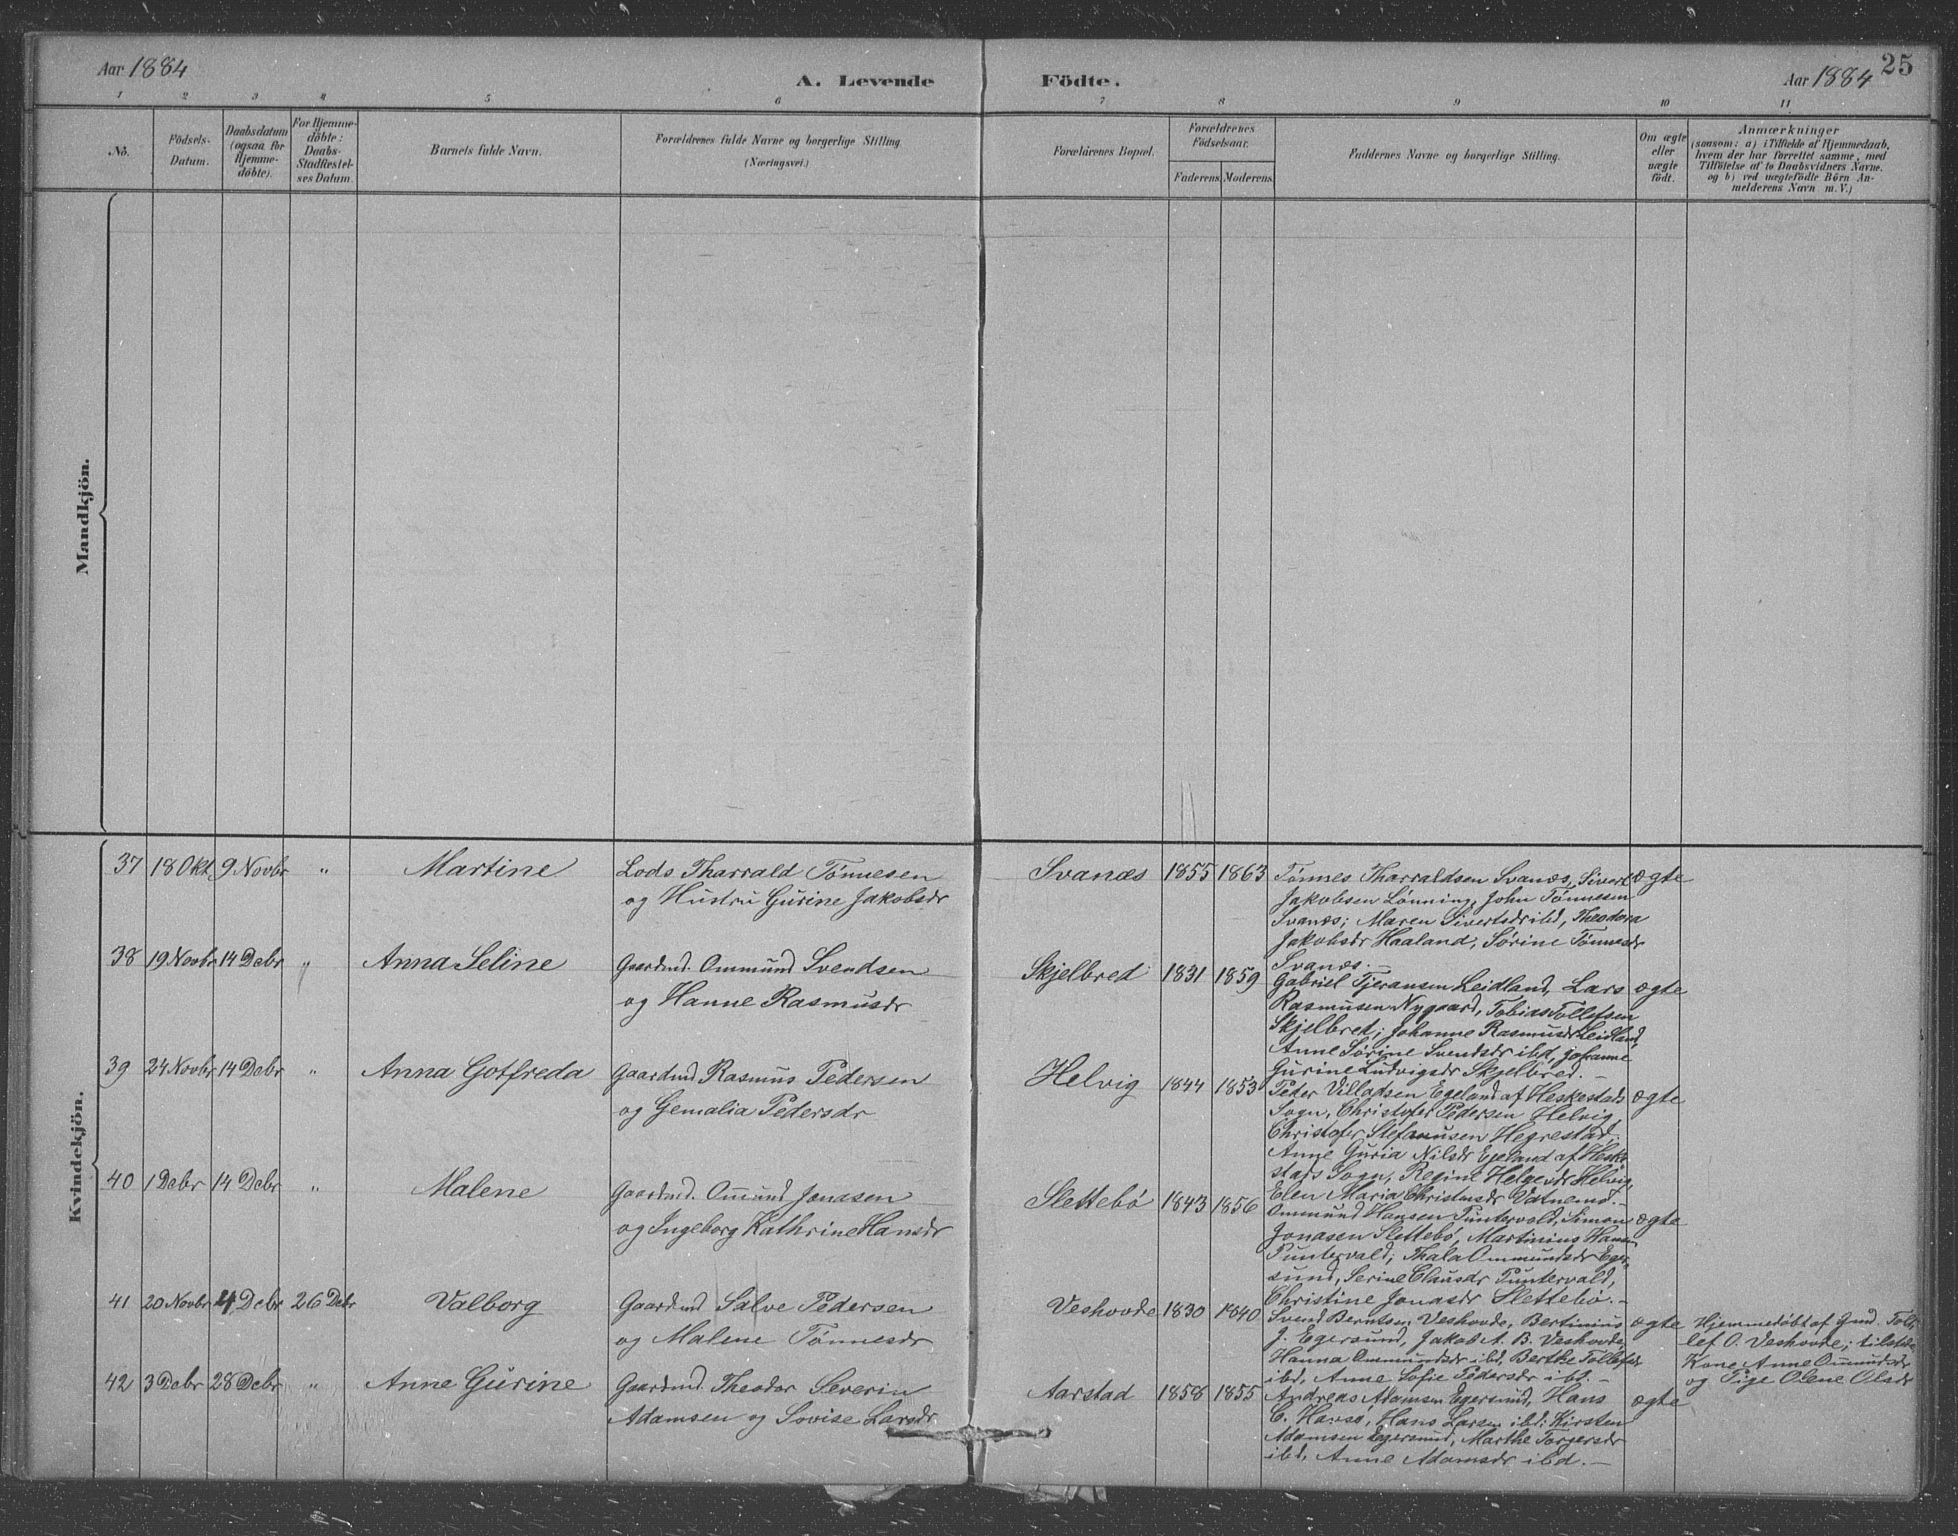 Aar 1884
A. Levende Födte.
Aar 1884
25
1 2 3 4 5 6 7 8 9 10 11
No.
Födsels-
Datum.
Daabsdatum
(ogsaa for
Hjemme-
döbte).
For Hjemme-
döbte:
Daabs-
Stadfæstel-
ses Datum.
Barnets fulde Navn.
Forældrenes fulde Navne og borgerlige Stilling
(Næringsvei.)
Forælårenes Bopæl.
Forældrenes
Födselsaar.
Faderens. Moderens.
Faddernes Navne og borgerlige Stilling.
Om ægte
eller
uægte
födt.
Anmærkninger
(saasom: a) i Tilfælde af Hjemmedaab,
hvem der har forrettet samme, med
Tilföielse af to Daabsvidners Navne.
og b) ved uægtefödte Börn An-
melderens Navn m. V.)
Mandkjön.
Kvindekjön.
37 18 Okt 9 Novbr " Martine
Lods Tharrald Tønnesen
og Hustru Gurine Jakobsdr
Svanæs 1855 1863
Tønnes Tharraldsen Svanæs, Sivert
Jakobsen Lønning, John Tønnesen
Svanæs; Maren Sivertsdr ibd, Theodora
Jakobsdr Haaland, Sørine Tønnesdr
Svanæs.—
ægte
38 19 Novbr 14 Debr " Anna Seline
Gaardmd. Ommund Svendsen
og Hanne Rasmusdr
Skjelbred 1831 1859
Gabriel Tjeransen Leidland, Lars
Rasmusen Nygaard, Tobias Tollefsen
Skjelbred; Johanne Rasmusdr Leidland,
Anne Sørine Svendsdr ibd, Johanne
Gurine Ludvigsdr Skjelbred.—
ægte
39 24 Novbr 14 Debr " Anna Gotfreda
Gaardmd Rasmus Pedersen
og Gemalia Pedersdr
Helvig 1844 1853
Peder Villadsen Egeland af Heskestads
Sogn, Christofer Pedersen Helvig,
Christofer Stefanusen Hegrestad;
Anne Guria Nilsdr Egeland af Heske-
stads Sogn, Regine Helgesdr Helvig,
Elen Maria Christensdr Vatnemo.—
ægte
40 1 Debr 14 Debr " Malene
Gaardmd. Omund Jonasen
og Ingeborg Kathrine Hansdr
Slettebö 1843 1856
Ommund Hansen Puntervold, Simon
Jonasen Slettebö, Martinius Hansen
Puntervald; Thala Ommundsdr Eger-
sund, Serine Clausdr Puntervald,
Christine Jonasdr Slettebö.—
ægte
41 20 Novbr 4 Debr 26 Debr Valborg
Gaardmd Salve Pedersen
og Malene Tönnesdr
Veshovde 1830 1840
Svend Berntsen Veshovde, Bertinius
J. Egersund, Jakob A. B. Veshovde,
Hanna Ommundsdr ibd, Berthe Tollefsdr
ibd, Anne Sofie Pedersdr ibd.—
ægte
Hjemmedöbt af Gmd. Tol-
lef O. Veshovde; tilstede
Kone Anne Ommundsdr
og Pige Olene Olsdr
42 3 Debr 28 Debr " Anne Gurine
Gaardmd. Theodor Severin
Adamsen og Lovise Larsdr
Aarstad 1858 1855
Andreas Adamsen Egersund, Hans
C. Hansö, Hans Larsen ibd; Kirsten
Adamsen Egersund, Marthe Torgersdr
ibd, Anne Adamsdr ibd.—
ægte